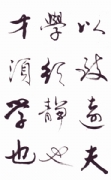 以致遠夫
學須靜也
才須学也